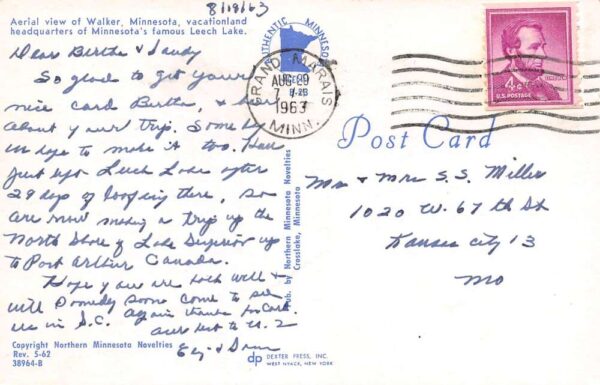 8/18/63
Aerial view of Walker, Minnesota, vacationland
headquarters of Minnesota's famous Leech Lake.
Dear Bertha &
So glad to get your
nice card Bertha, &
about your trip. Some day
hope to make it too. Had
just left Leech Lake after
29 days of loafing there, so
are now making a trip up the
North Shore of Lake Superior up
to Port Arthur Canada.
Hope you are both well &
will someday soon come to see
us in S.C. Again thanks for card.
Our best to U. 2
&
Copyright Northern Minnesota Novelties
Rev. 5-62
38964-B
AUTHENTIC MINNESOTA
Pub. by Northern Minnesota Novelties
Crosslake, Minnesota
dp DEXTER PRESS, INC.
WEST NYACK, NEW YORK
GRAND MARAIS
AUG 29
1963
MINN.
4¢
U.S. POSTAGE
Post Card
Mr & Mrs S.S. Miller
1020 W. 67th St
Kansas City 13
Mo